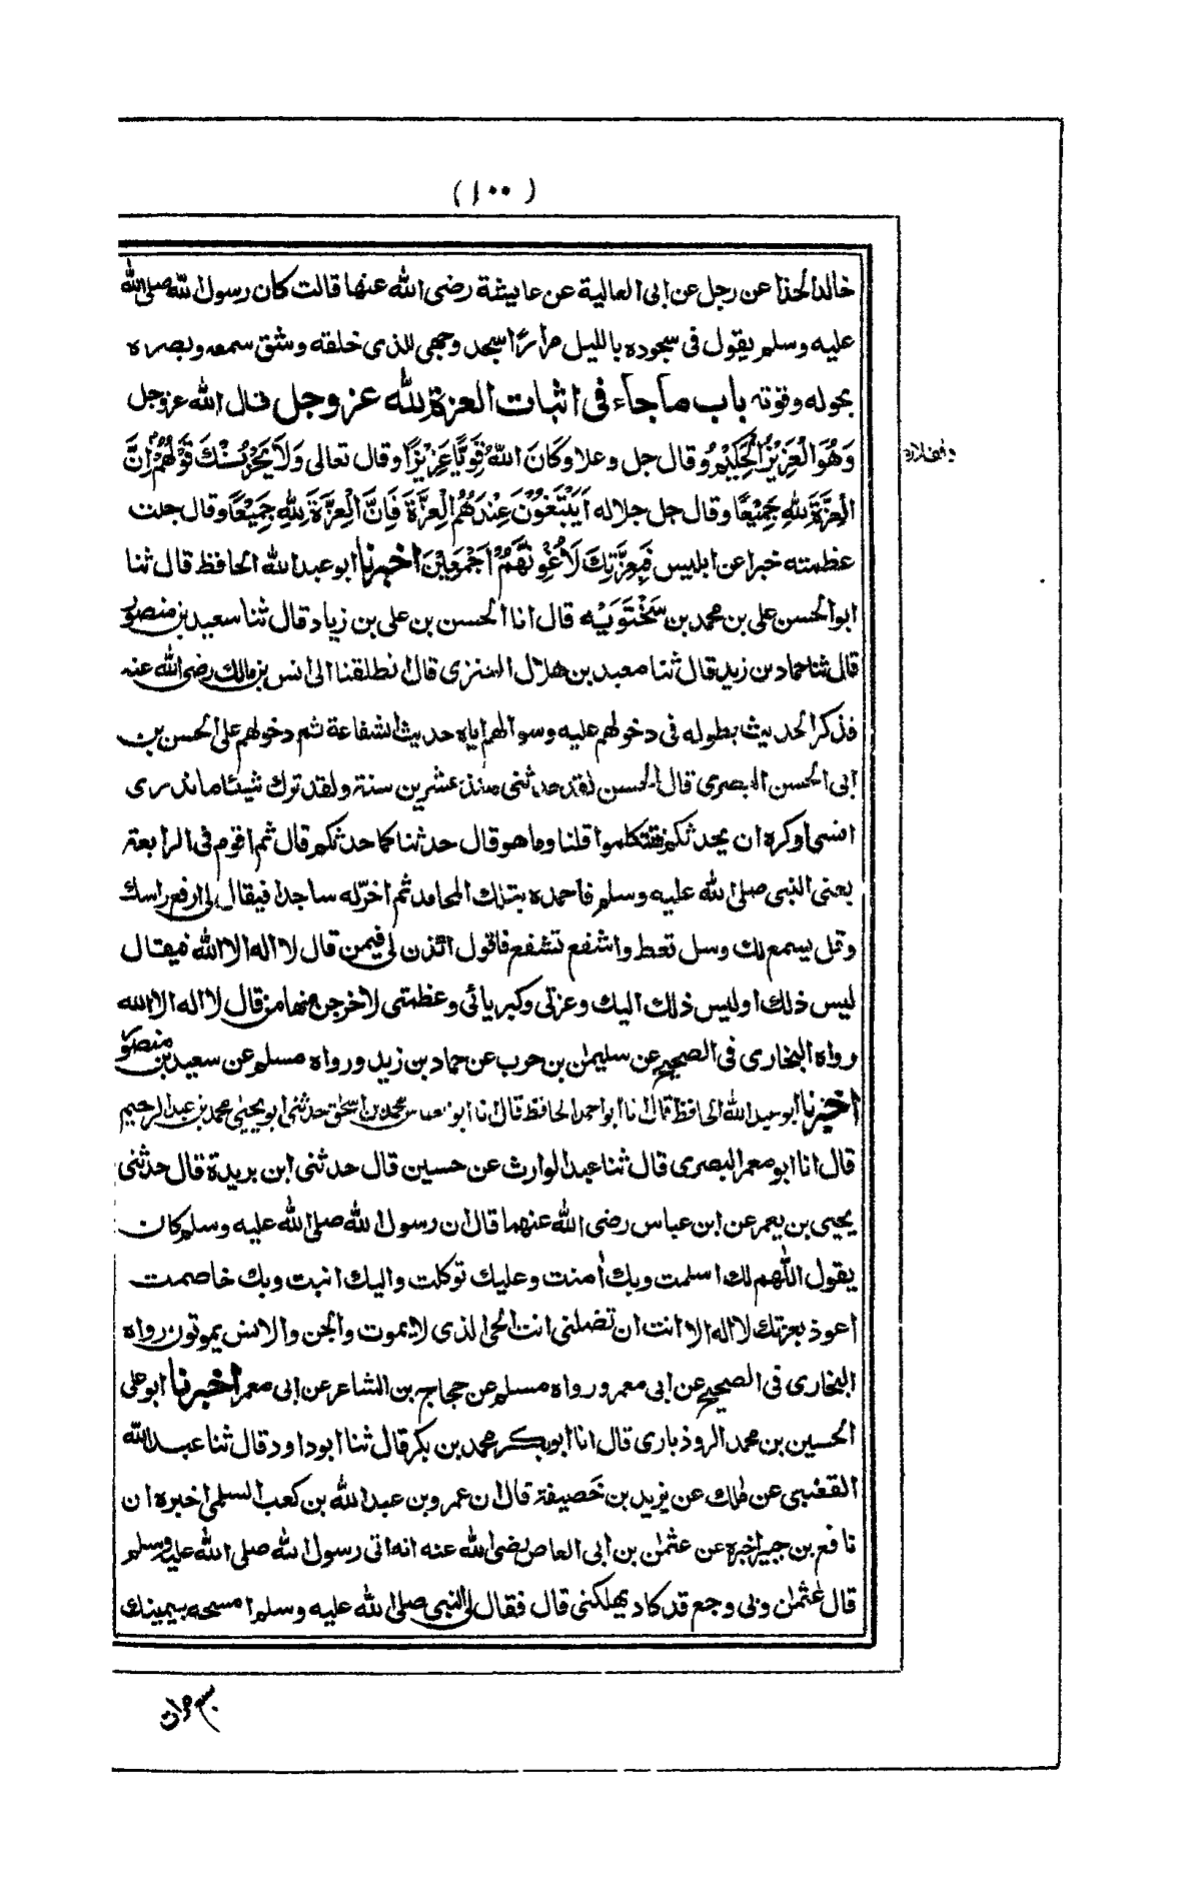 (١٠٠)
خالد الحذا عن رجل عن ابى العالية عن عايشة رضى الله عنها قالت كان رسول الله صلى الله
عليه وسلم يقول فى سجوده بالليل مرارًا سجد وجهى للذى خلقه وشق سمعه وبصره
بحوله وقوته باب ما جاء فى اثبات العزة لله عز وجل قال الله عز وجل
وَهُوَ الْعَزِيْزُ الْحَكِيْمُ وقال جل وعلا وَكَانَ اللهُ قَوِيًّا عَزِيْزًا وقال تعالى وَلَا يَحْزُنْكَ قَوْلُهُمْ اِنَّ
الْعِزَّةَ لِلّٰهِ جَمِيْعًا وقال جل جلاله اَيَبْتَغُوْنَ عِنْدَهُمُ الْعِزَّةَ فَاِنَّ الْعِزَّةَ لِلّٰهِ جَمِيْعًا وقال جلت
عظمته خبرا عن ابليس فَبِعِزَّتِكَ لَاُغْوِيَنَّهُمْ اَجْمَعِيْنَ اخبرنا ابو عبد الله الحافظ قال ثنا
ابو الحسن على بن محمد بن سَخْتَوَيْه قال انا الحسن بن على بن زياد قال ثنا سعيد بن منصور
قال ثنا حماد بن زيد قال ثنا معبد بن هلال العنزى قال انطلقنا الى انس بن مالك رضى الله عنه
فذكر الحديث بطوله فى دخولهم عليه وسوالهم اياه حديث الشفاعة ثم دخولهم على الحسن بن
ابى الحسن البصرى قال الحسن لقد حدثنى منذ عشرين سنة ولقد ترك شيئا ما ندرى
انسى او كره ان يحدثكم فتتكلموا قلنا وما هو قال حدثنا كما حدثكم قال ثم اقوم فى الرابعة
يعنى النبى صلى الله عليه وسلم فاحمده بتلك المحامد ثم اخر له ساجدا فيقال لى ارفع راسك
وقل يسمع لك وسل تعط واشفع تشفع فاقول ائذن لى فيمن قال لا اله الا الله فيقال
ليس ذلك او ليس ذلك اليك وعزتى وكبريائى وعظمتى لاخرجن منها من قال لا اله الا الله
رواه البخارى فى الصحيح عن سليمٰن بن حرب عن حماد بن زيد ورواه مسلم عن سعيد بن منصور
اخبرنا ابو عبد الله الحافظ قال انا ابو احمد الحافظ قال انا ابو العباس محمد بن اسحٰق حدثنى ابو يحيىٰ محمد بن عبد الرحيم
قال انا ابو معمر البصرى قال ثنا عبد الوارث عن حسين قال حدثنى ابن بريدة قال حدثنى
يحيى بن يعمر عن ابن عباس رضى الله عنهما قال ان رسول الله صلى الله عليه وسلم كان
يقول اللّٰهم لك اسلمت وبك اٰمنت وعليك توكلت واليك انبت وبك خاصمت
اعوذ بعزتك لا اله الا انت ان تضلنى انت الحى الذى لا يموت والجن والانس يموتون رواه
البخارى فى الصحيح عن ابى معمر ورواه مسلم عن حجاج بن الشاعر عن ابى معمر اخبرنا ابو على
الحسين بن محمد الروذبارى قال انا ابو بكر محمد بن بكر قال ثنا ابو داود قال ثنا عبد الله
القعنبى عن مٰلك عن يزيد بن خَصيفة قال ان عمرو بن عبد الله بن كعب السلمى اخبره ان
نافع بن جبير اخبره عن عثمٰن بن ابى العاص رضى الله عنه انه اتى رسول الله صلى الله عليه وسلم
قال عثمٰن وبى وجع قد كاد يهلكنى قال فقال لى النبى صلى الله عليه وسلم امسحه بيمينك